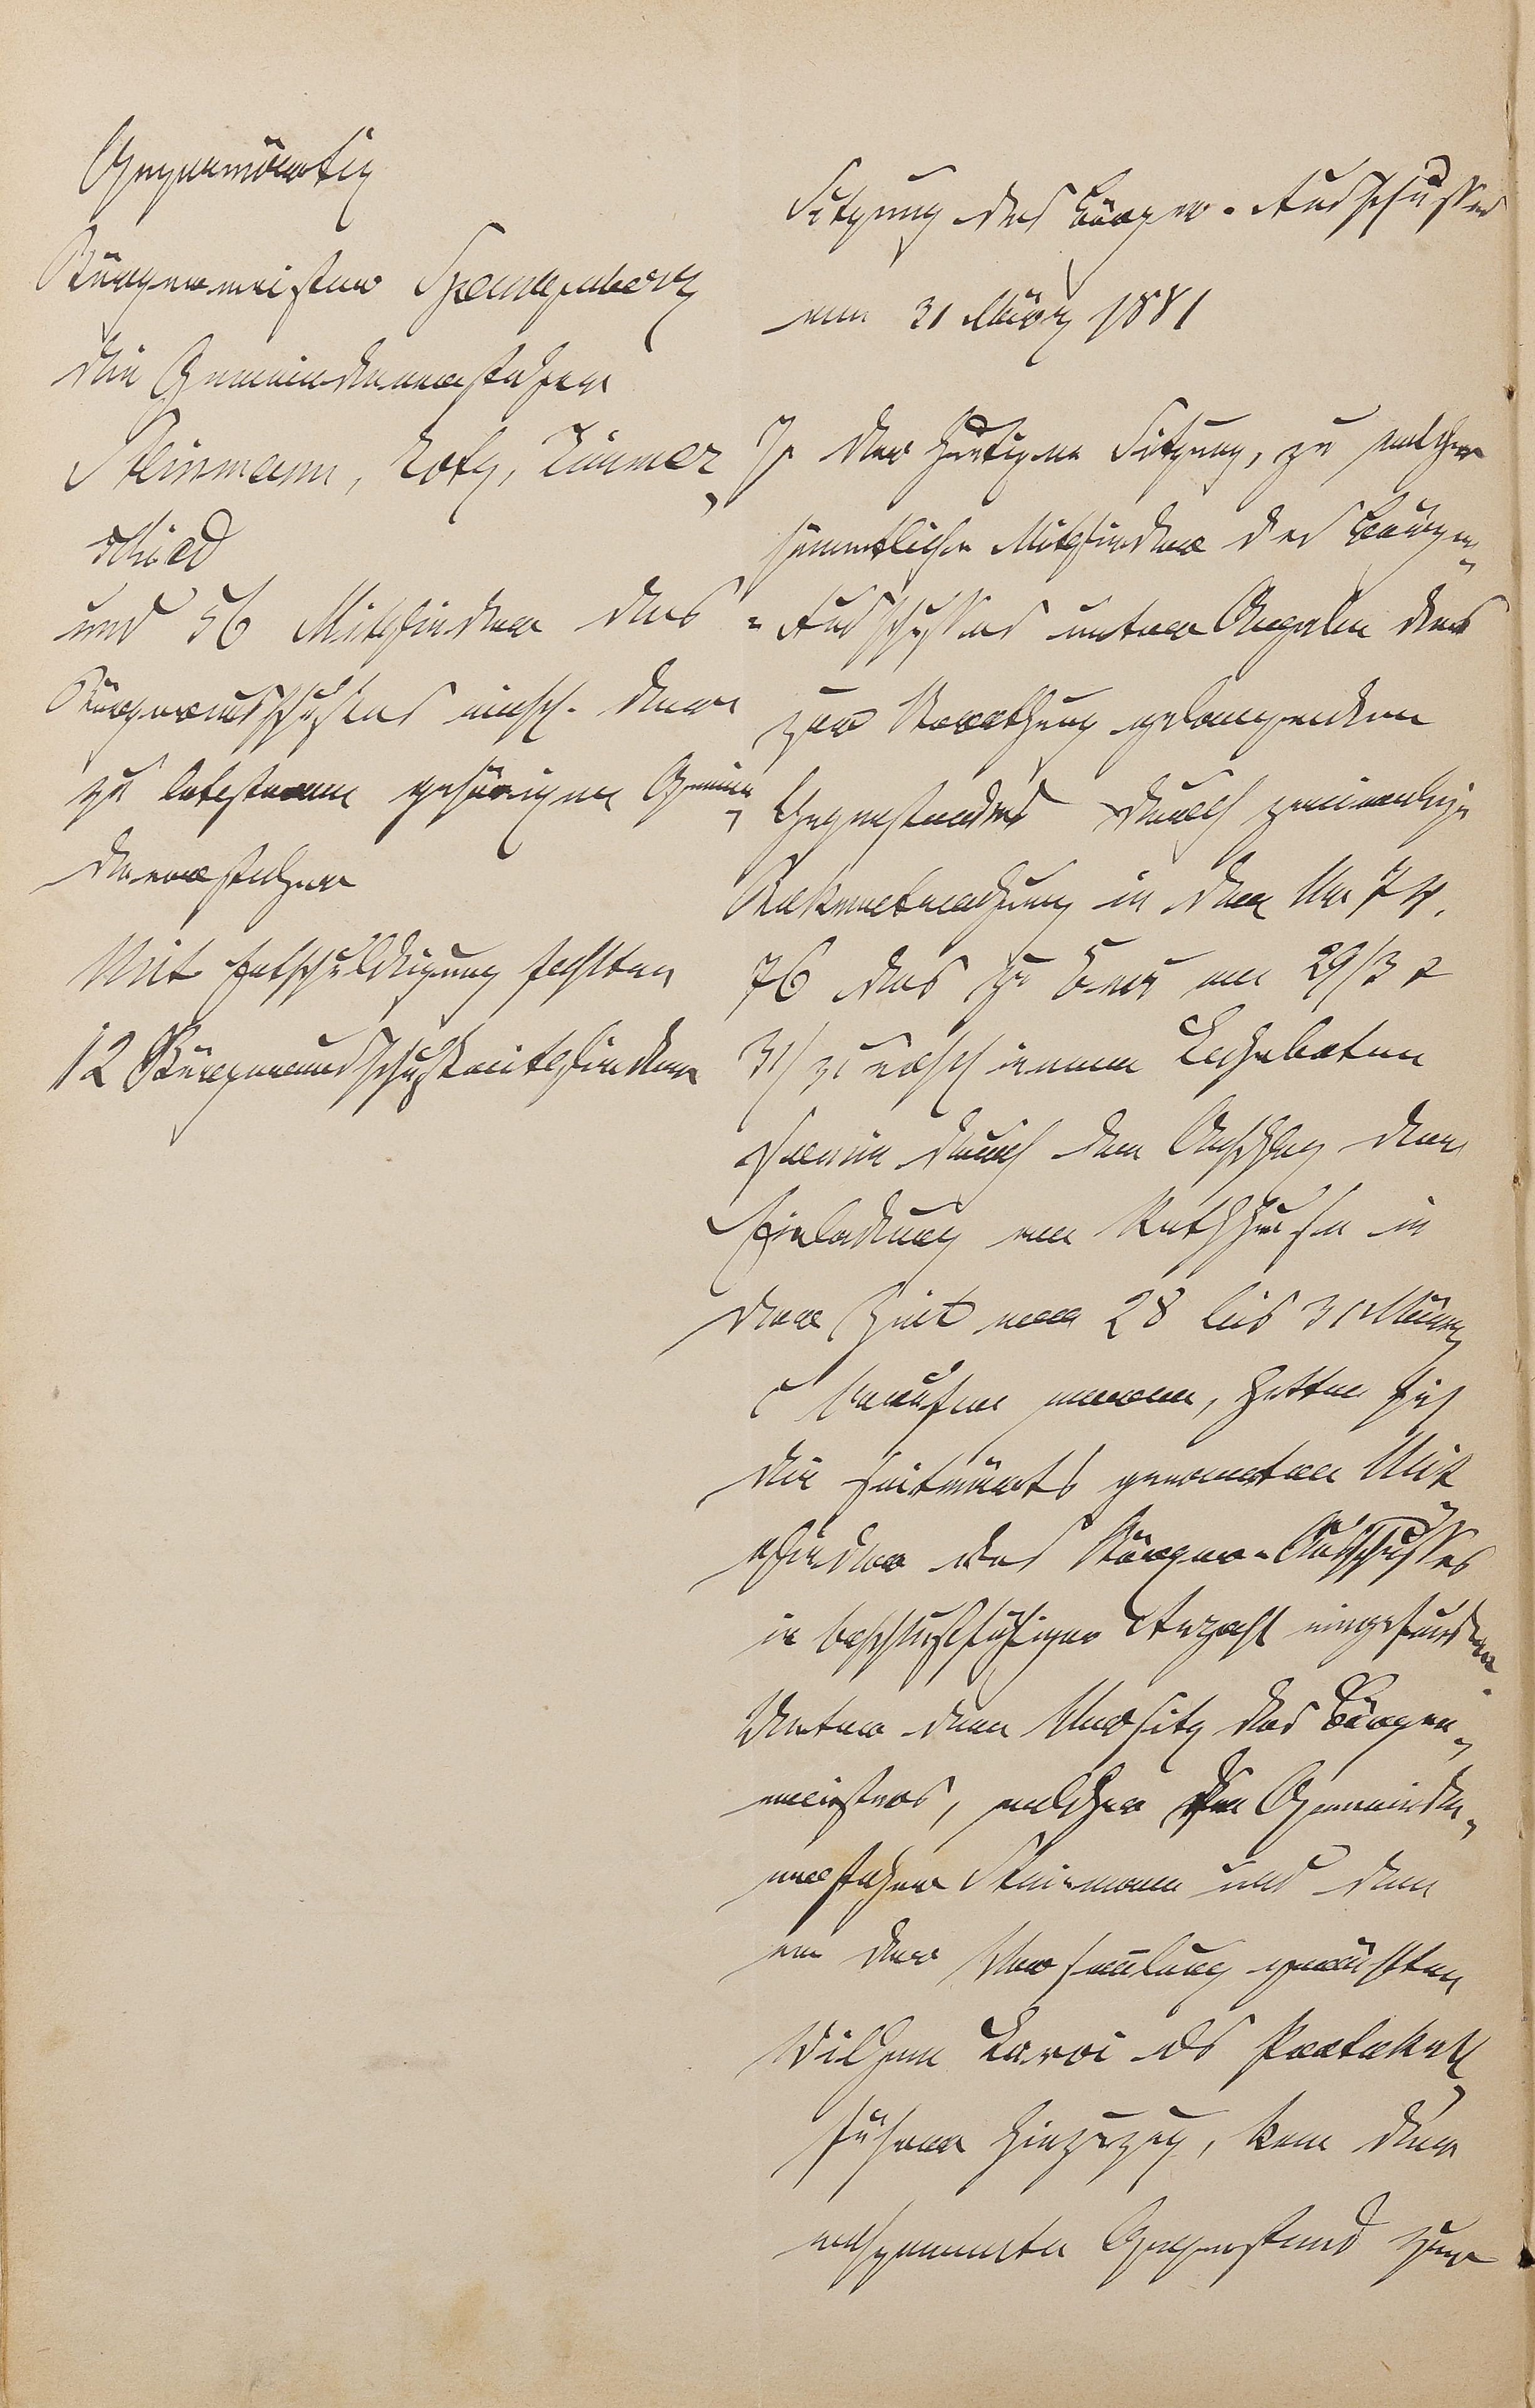 Gegenwärtig
Bürgermeister Spangenberg
die Gemeindevorsteher
Steinmann, Lotz, Zimmer,
schied
und 56 Mitglieder des
Bürgerausschusses einschl. der
zu letzterem gehörigen Gemein,
devorsteher
Mit Entschuldigung fehlten
12 Bürgerausschußmitglieder
Sitzung des Bürger-Ausschusses
vom 31 März 1881
In der heutigen Sitzung, zu welcher
sämmtliche Mitglieder des Bürger,
-Ausschusses unter Angabe des
zur Berathung gelangenden
Gegenstandes durch zweimalige
Bekanntmachung in den No 74.
76 des zu am 29/3 &
31/3 erschienenen
sowie durch den Anschlag der
Einladung am Rathhause in
der Zeit vom 28 bis 31 März
c berufen waren, hatten sich
die seitwärts genannten Mit
glieder des Bürger-Ausschusses
in beschlußfähiger Anzahl eingefunden.
Unter dem Vorsitz des Bürger,
meisters, welcher den Gemeinde,
vorsteher Steinmann und den
von der Versamlung gewählten
Wilhelm als Protokoll,
führer hinzuzog, kam der
obgenannte Gegenstand zur